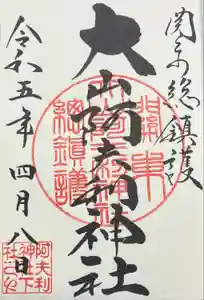 関東総鎮護
大山阿夫利神社
令和五年四月八日
関東
総鎮護
阿夫利
神社下
社之印